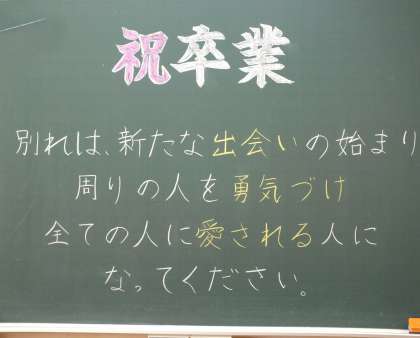 祝卒業
別れは、新たな出会いの始まり
周りの人を勇気づけ
全ての人に愛される人に
なってください。